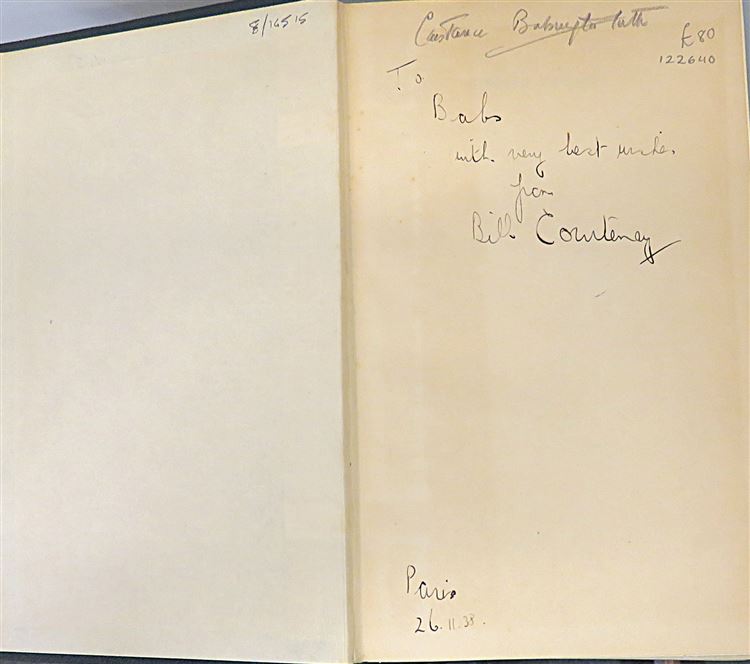 8/14515
Constance Babington Smith
£80
122640
To
Babs
with very best wishes
from
Bill Courtenay
Paris
26.11.38.